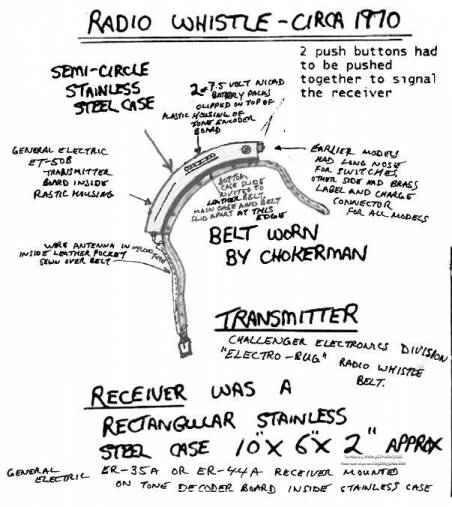 RADIO WHISTLE - CIRCA 1970
2 push buttons had
to be pushed
together to signal
the receiver
SEMI-CIRCLE
STAINLESS
STEEL CASE
2 - 7.5 VOLT NICAD
BATTERY PACKS
CLIPPED ON TOP OF
PLASTIC HOUSING OF
TONE ENCODER
BOARD
GENERAL ELECTRIC
ET-50B
TRANSMITTER
BOARD INSIDE
PLASTIC HOUSING
EARLIER MODELS
HAD LONG NOSE
FOR SWITCHES
OTHER SIDE HAD BRASS
LABEL AND CHARGE
CONNECTOR
FOR ALL MODELS
BOTTOM
CASE SLIDE
RIVITED TO
LEATHER BELT.
MAIN CASE AND BELT
SLID APART AT THIS
EDGE
WIRE ANTENNA IN
INSIDE LEATHER POCKET
SEWN OVER BELT
BELT WORN
BY CHOKERMAN
TRANSMITTER
CHALLENGER ELECTRONICS DIVISION
"ELECTRO-BUG" RADIO WHISTLE
BELT.
RECEIVER WAS A
RECTANGULAR STAINLESS
STEEL CASE 10"X 6"X 2" APPROX
GENERAL ELECTRIC ER-35A OR ER-44A RECEIVER MOUNTED
ON TONE DECODER BOARD INSIDE STAINLESS CASE